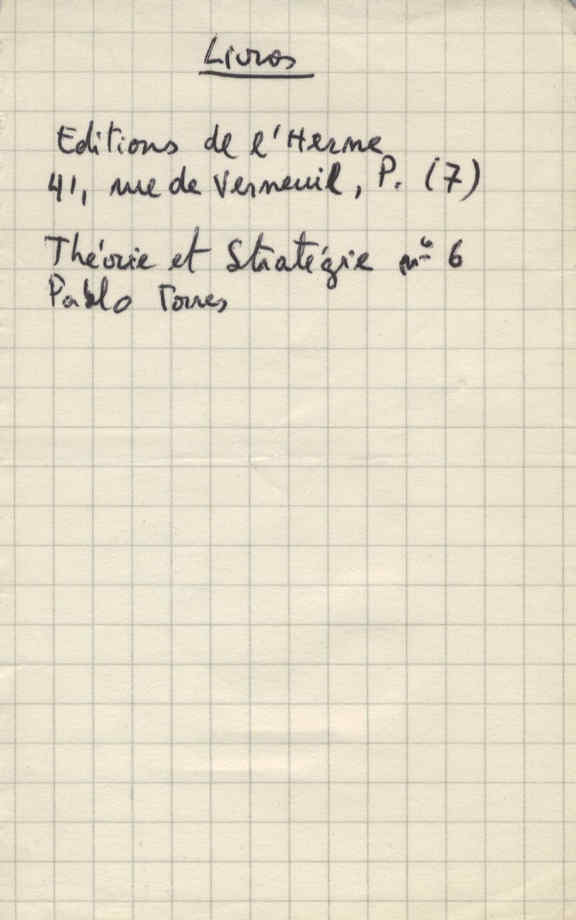 Livros
Editions de l'Herne
41, rue de Verneuil, P. (7)
Théorie et Stratégie nº 6
Pablo Torres